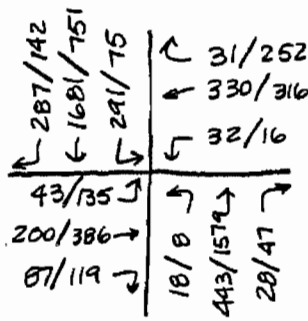 287/142
1681/751
291/75
31/252
330/316
32/16
43/135
200/386
87/119
18/8
443/1579
28/47